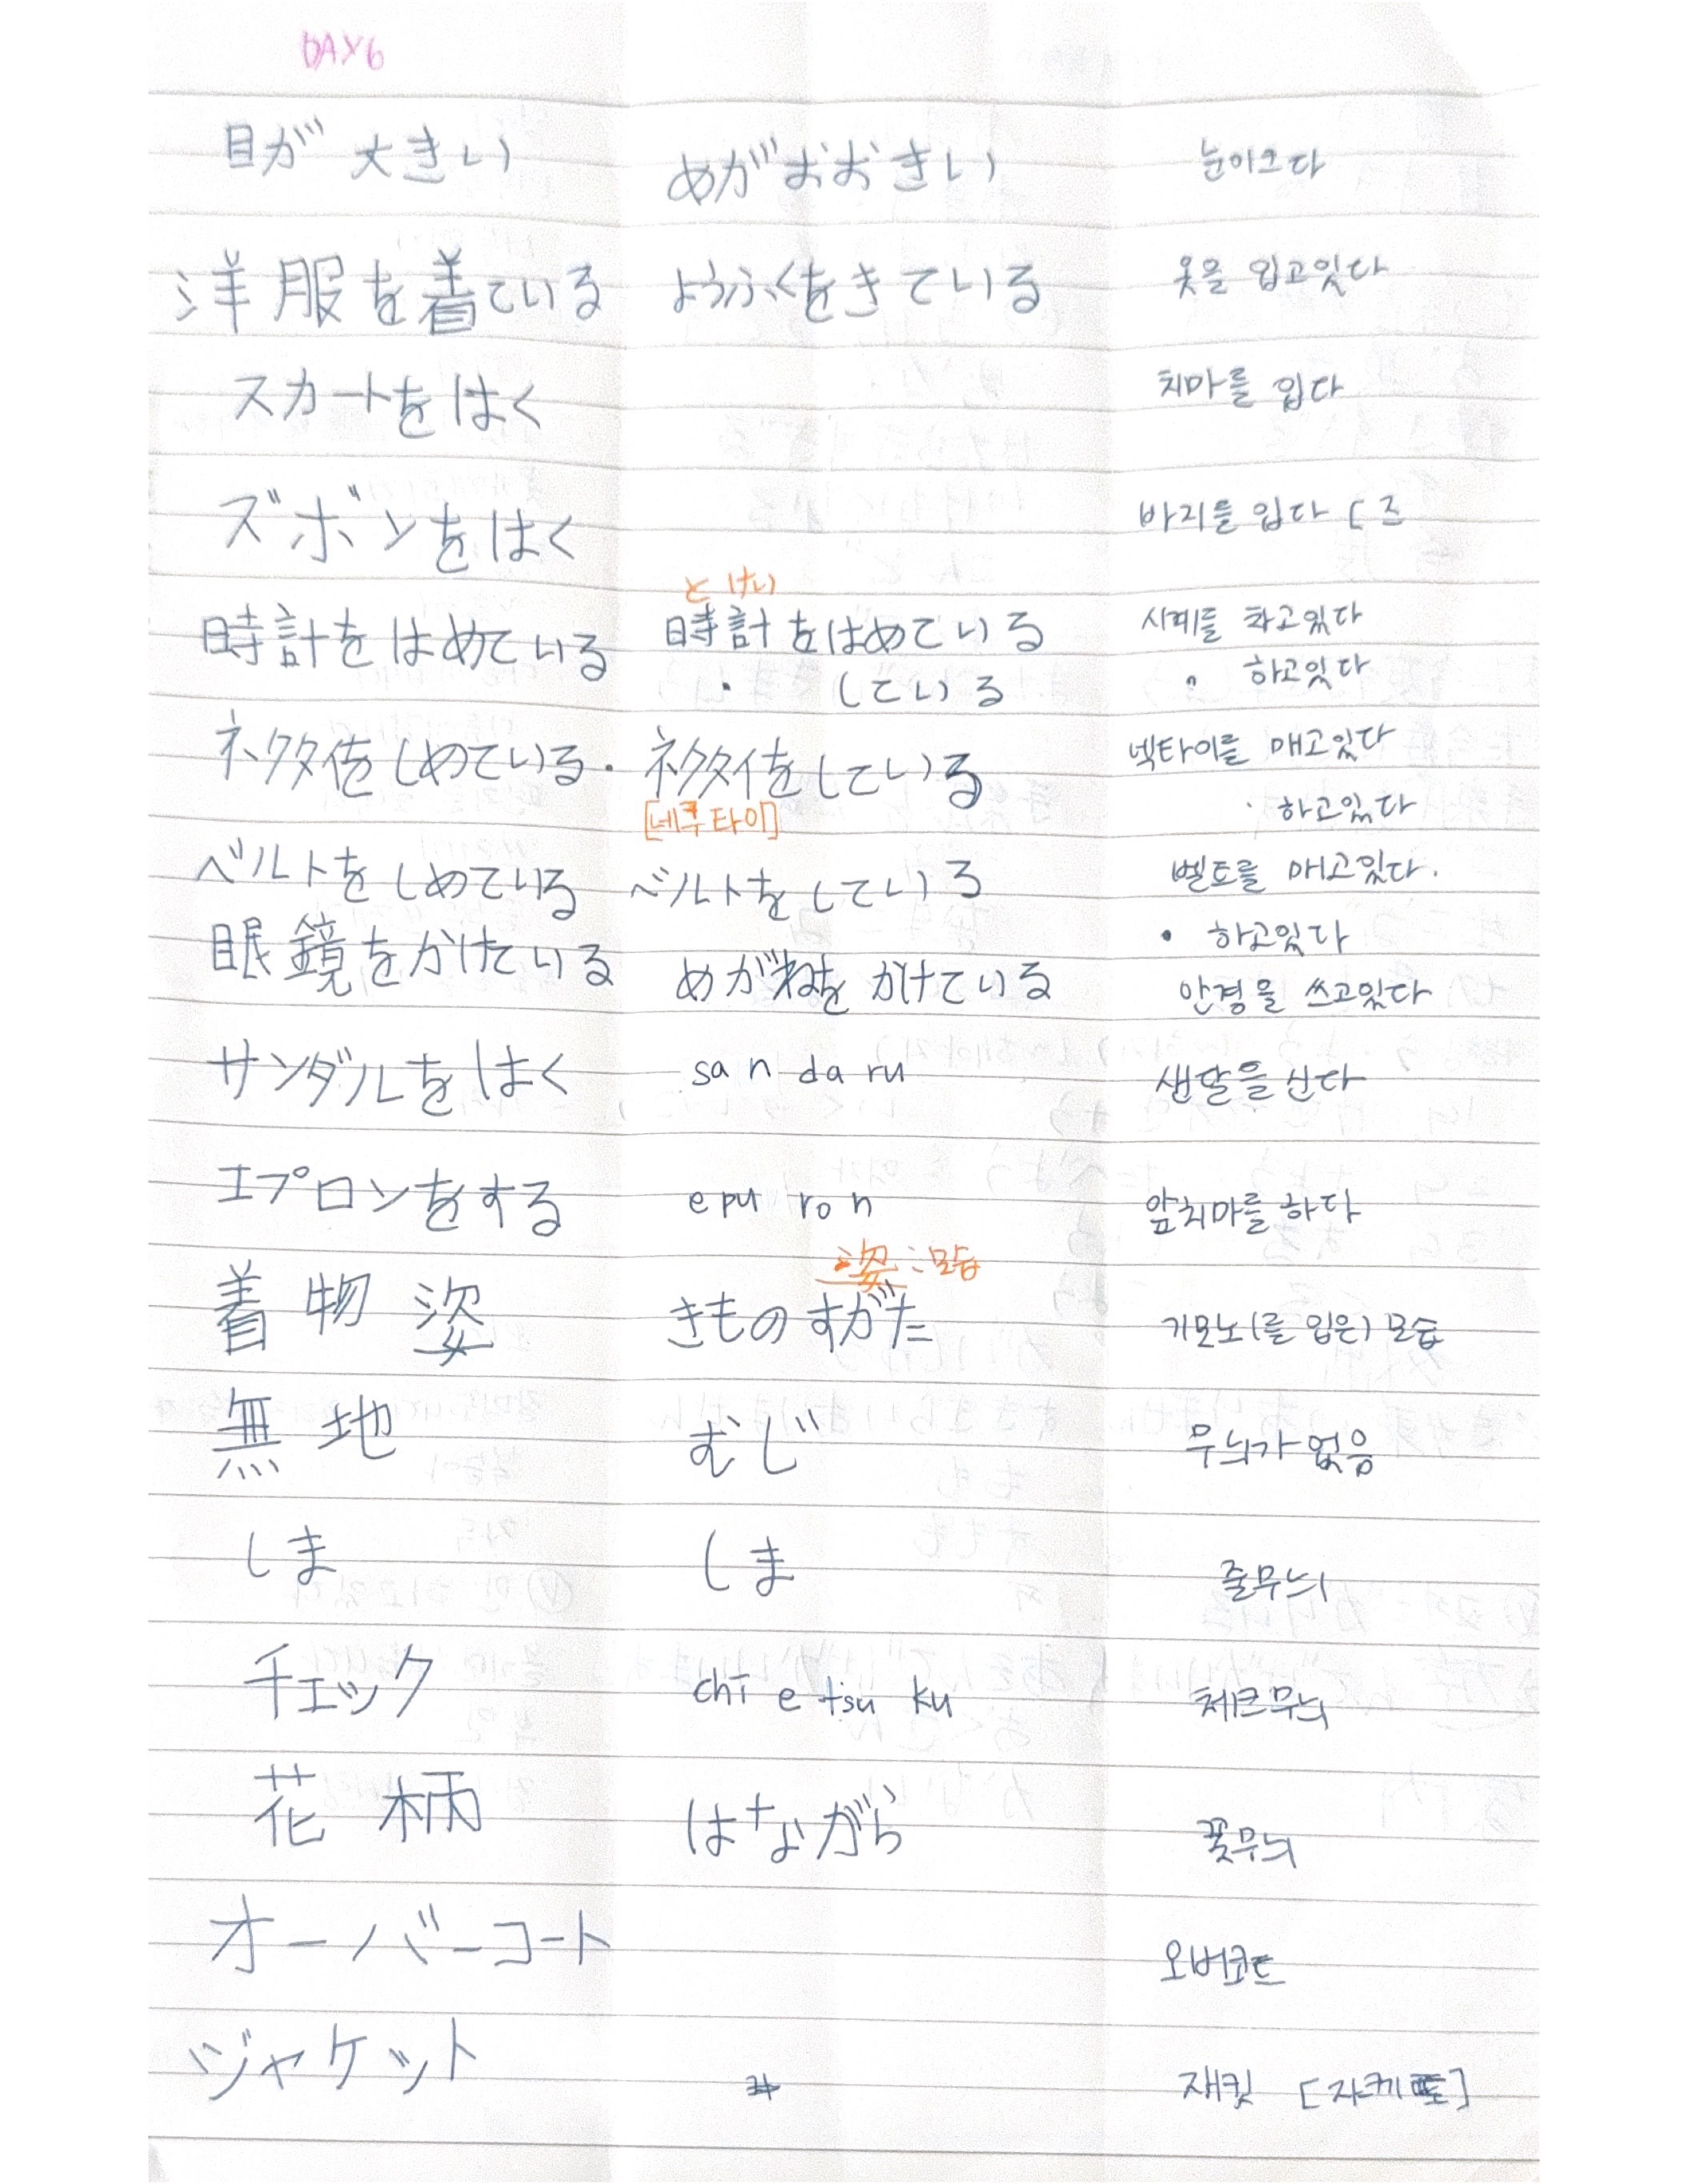 DAY6
目が 大きい めがおおきい 눈이크다
洋服を着ている ようふくをきている 옷을 입고있다
スカートをはく 치마를 입다
ズボンをはく 바지를 입다 [ズ
とけい
時計をはめている 時計をはめている 시계를 차고있다
・ している 〃 하고있다
ネクタイをしめている・ネクタイをしている 넥타이를 매고있다
[네쿠타이] ・ 하고있다
ベルトをしめている ベルトをしている 벨트를 매고있다.
・ 하고있다
眼鏡をかけている めがねをかけている 안경을 쓰고있다
サンダルをはく sa n da ru 샌달을 신다
エプロンをする e pu ro n 앞치마를 하다
姿:모습
着物姿 きものすがた 기모노(를 입은) 모습
無地 むじ 무늬가 없음
しま しま 줄무늬
チェック chi e tsu ku 체크무늬
花柄 はながら 꽃무늬
オーバーコート 오버코트
ジャケット 재킷 [자케토]